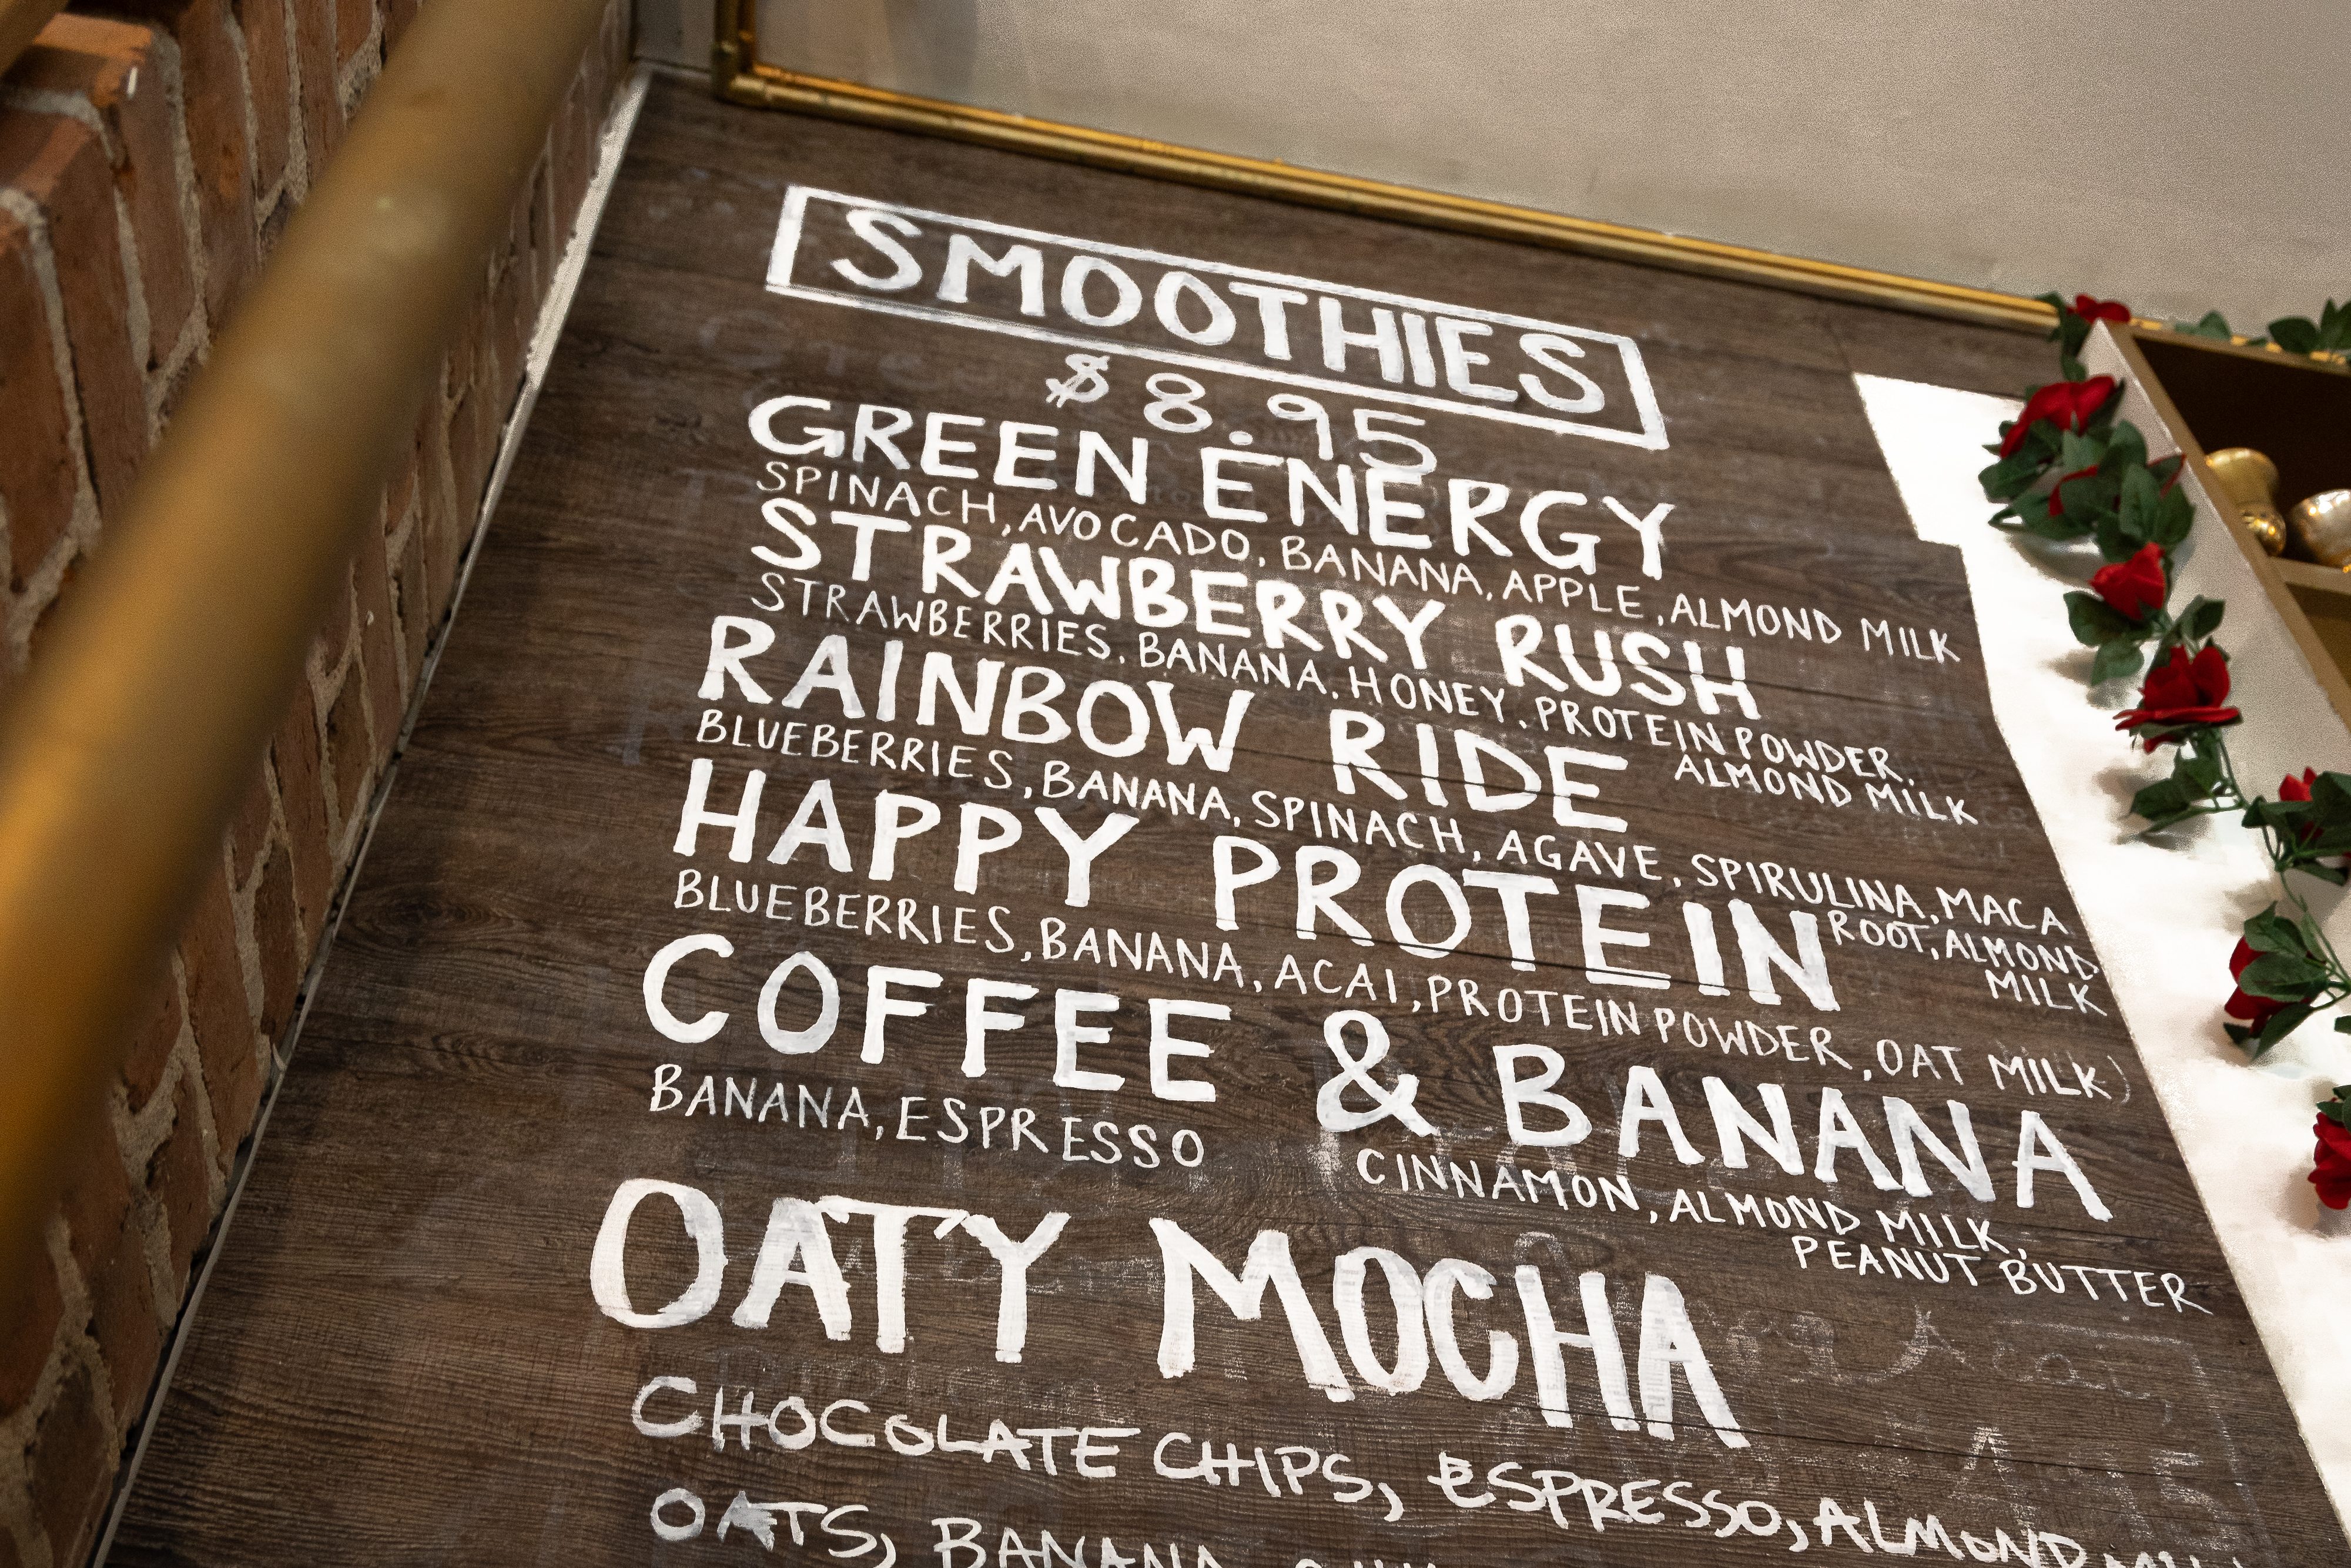 SMOOTHIES
$8.95
GREEN ENERGY
SPINACH, AVOCADO, BANANA, APPLE, ALMOND MILK
STRAWBERRY RUSH
STRAWBERRIES, BANANA, HONEY, PROTEIN POWDER,
ALMOND MILK
RAINBOW RIDE
BLUEBERRIES, BANANA, SPINACH, AGAVE, SPIRULINA, MACA
ROOT, ALMOND
MILK
HAPPY PROTEIN
BLUEBERRIES, BANANA, ACAI, PROTEIN POWDER, OAT MILK)
COFFEE & BANANA
BANANA, ESPRESSO
CINNAMON, ALMOND MILK,
PEANUT BUTTER
OATY MOCHA
CHOCOLATE CHIPS, ESPRESSO, ALMOND
OATS, BANANA